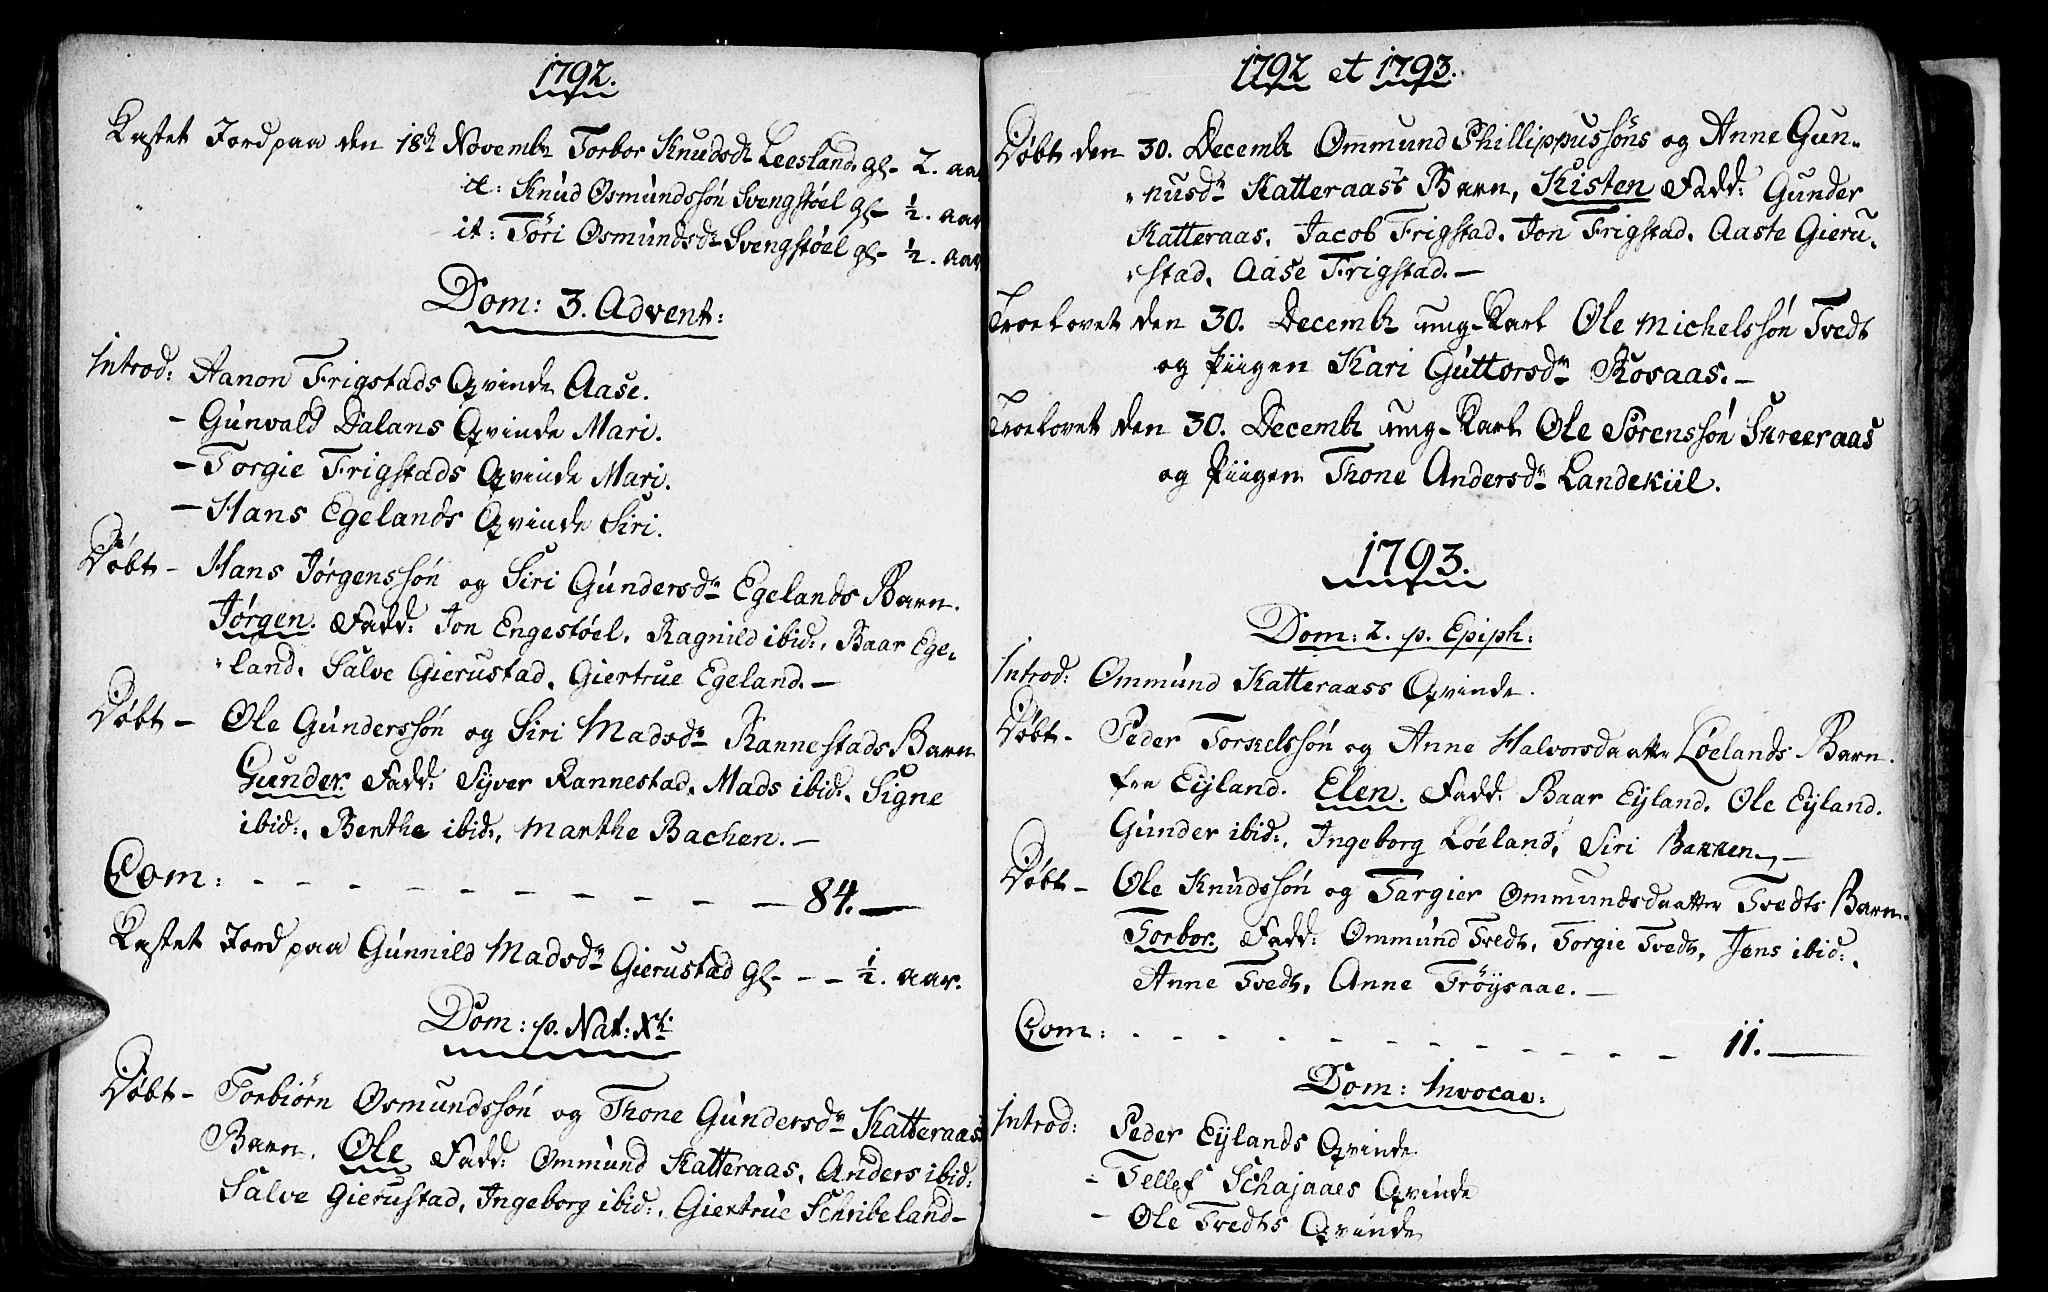 1792.
Kastet Jord paa den 18de Novembr Torbor Knudsdr Leesland. gl- 2. aar
it: Knud Osmundssøn Svengstøel gl- ½. aar
it: Töri Osmundsdr Svengstøel gl- ½. aar
Dom: 3. Advent:
Introd: Aanon Frigstads Qvinde Aase.
- Gunvald Dalans Qvinde Mari.
- Torgie Frigstads Qvinde Mari.
- Hans Egelands Qvinde Siri.
Døbt - Hans Jørgenssøn og Siri Gundersdr Egelands Barn.
Jørgen. Fadd: Jon Engestøel, Ragnild ibid:, Baar Ege-
land, Salve Gierustad, Giertrue Egeland. -
Døbt - Ole Gunderssøn og Siri Madsdr Rannestads Barn
Gunder. Fadd: Syver Rannestad, Mads ibid:, Signe
ibid:, Berthe ibid:, Marthe Bachen. -
Com: - - - - - - - - - - - 84. -
Kastet Jord paa Gunnild Madsdr Gierustad gl- - - ½. aar.
Dom: p. Nat: Xti:
Døbt - Torbiørn Osmundssøn og Thone Gundersdr Katteraas
Barn. Ole Fadd: Ommund Katteraas, Anders ibid:
Salve Gierustad, Ingeborg ibid:, Giertrue Schribeland -
1792 et 1793.
Døbt den 30. Decembr Ommund Phillippussøns og Anne Gun-
nusdr Katteraass Barn, Kisten Fadd: Gunder
Katteraas, Jacob Frigstad, Jon Frigstad, Aaste Gieru-
stad, Aase Frigstad. -
Troelovet den 30. Decembr ung-Karl Ole Michelssøn Tvedt
og Piigen Kari Guttorsdr Rosaas. -
Troelovet den 30. Decembr ung-Karl Ole Sørenssøn Skreeraas
og Piigen Thone Andersdr Landekiil.
1793.
Dom: 2. p. Epiph:
Introd: Ommund Katteraass Qvinde.
Døbt - Peder Torkelssøn og Anne Halvorsdaatter Løelands Barn.
fra Eyland. Elen. Fadd: Baar Eyland, Ole Eyland.
Gunder ibid:, Ingeborg Løeland, Siri Bakken -
Døbt - Ole Knudssøn og Targier Ommundsdaatter Tvedts Barn
Torbor. Fadd: Ommund Tvedt, Torgie Tvedt, Jens ibid:,
Anne Tvedt, Anne Trøysaae. -
Com: - - - - - - - - - - - - 11. -
Dom: Invocav:
Introd: Peder Eylands Qvinde
- Tellef Schajaaes Qvinde
- Ole Tvedts Qvinde